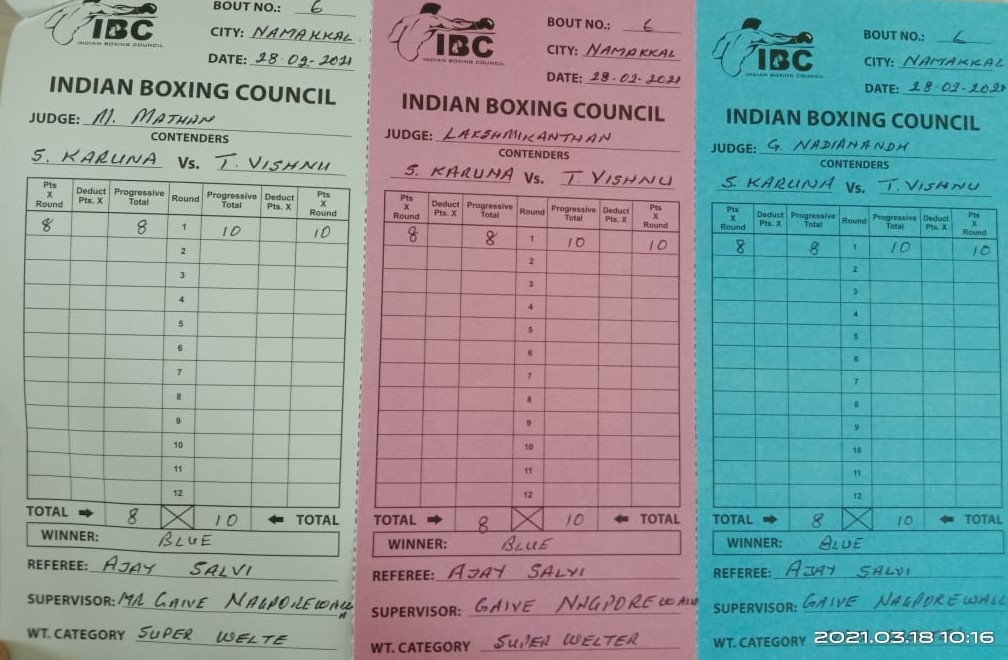 IBC
INDIAN BOXING COUNCIL
BOUT NO.: 6
CITY: NAMAKKAL
DATE: 28-02-2021
INDIAN BOXING COUNCIL
JUDGE: M. MATHAN
CONTENDERS
S. KARUNA Vs. T. VISHNU
Pts X Round Deduct Pts. X Progressive Total Round Progressive Total Deduct Pts. X Pts X Round
8 8 1 10 10
2
3
4
5
6
7
8
9
10
11
12
TOTAL 8 10 TOTAL
WINNER: BLUE
REFEREE: AJAY SALVI
SUPERVISOR: MR GAIVE NAGPOREWALLA
WT. CATEGORY SUPER WELTE
IBC
INDIAN BOXING COUNCIL
BOUT NO.: 6
CITY: NAMAKKAL
DATE: 28-02-2021
INDIAN BOXING COUNCIL
JUDGE: LAKSHMIKANTHAN
CONTENDERS
S. KARUNA Vs. T VISHNU
Pts X Round Deduct Pts. X Progressive Total Round Progressive Total Deduct Pts. X Pts X Round
8 8 1 10 10
2
3
4
5
6
7
8
9
10
11
12
TOTAL 8 10 TOTAL
WINNER: BLUE
REFEREE: AJAY SALVI
SUPERVISOR: GAIVE NAGPOREWALL
WT. CATEGORY SUPER WELTER
IBC
INDIAN BOXING COUNCIL
BOUT NO.: 6
CITY: NAMAKKAL
DATE: 28-02-2021
INDIAN BOXING COUNCIL
JUDGE: G. NADIANANDH
CONTENDERS
S. KARUNA Vs. T. VISHNU
Pts X Round Deduct Pts. X Progressive Total Round Progressive Total Deduct Pts. X Pts X Round
8 8 1 10 10
2
3
4
5
6
7
8
9
10
11
12
TOTAL 8 10 TOTAL
WINNER: BLUE
REFEREE: AJAY SALVI
SUPERVISOR: GAIVE NAGPOREWALL
WT. CATEGORY
2021.03.18 10:16